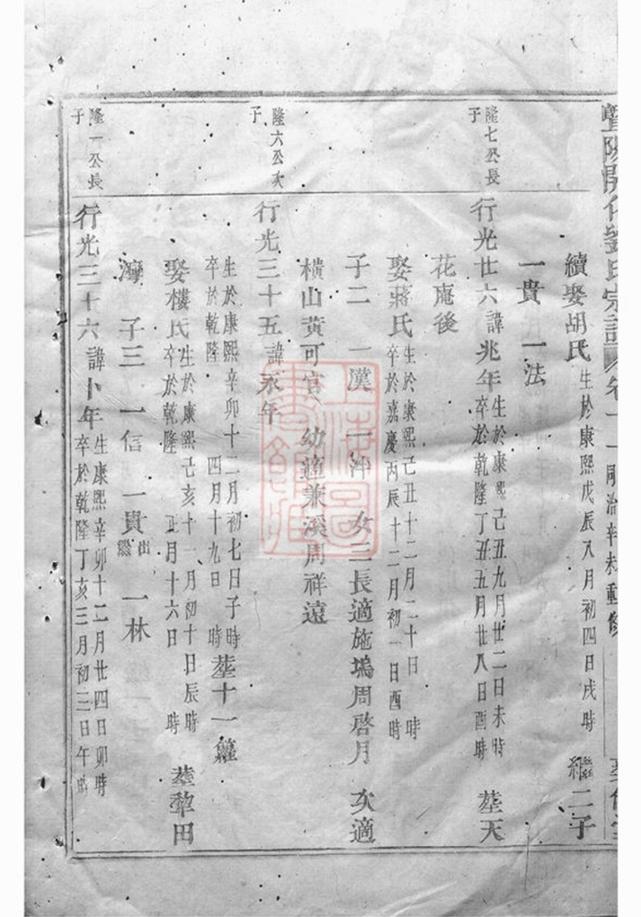 暨陽開化劉氏宗譜 卷 一 同治辛未重修
續娶胡氏 生於康熙戊辰八月初四日戌時 繼二子
一貴 一法
隆七公長子
行光廿六 諱兆年 生於康熙己丑九月廿二日未時 卒於乾隆丁丑五月廿八日酉時 塟天
花庵後
娶蔣氏 生於康熙己丑十二月二十日 時 卒於嘉慶丙辰十二月初一日酉時
子二 一漢 一沖 女三長適施塢周啓月 次適
橫山黃可官 幼適兼溪周祥遠
隆六公次子
行光三十五 諱永年 生於康熙辛卯十二月初七日子時 卒於乾隆 四月十九日 時 塟十一
娶樓氏 生於康熙己亥十一月初十日辰時 卒於乾隆 正月十六日 時 塟犂田
灣 子三 一信 一貴 出繼 一林
隆一公長子
行光三十六 諱卜年 生康熙辛卯十二月廿四日卯時 卒於乾隆丁亥三月初三日午時